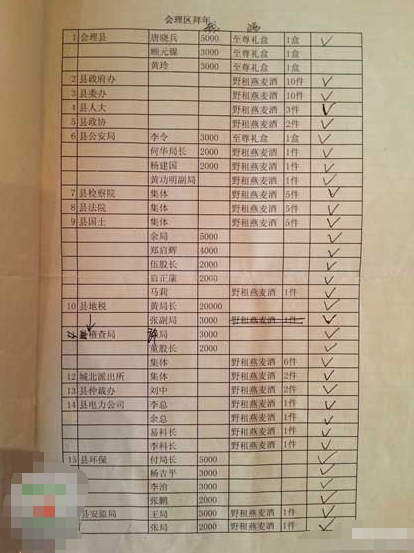 会理区拜年
酒
1 会理县 唐晓兵 5000 至尊礼盒 1盒 ✓
顾元镍 3000 至尊礼盒 1盒
黄玲 3000 至尊礼盒 1盒
2 县政府办 野租燕麦酒 10件 ✓
3 县委办 野租燕麦酒 10件 ✓
4 县人大 野租燕麦酒 3件 ✓
5 县政协 野租燕麦酒 2件 ✓
6 县公安局 李令 3000 至尊礼盒 1盒 ✓
何华局长 2000 野租燕麦酒 1件 ✓
杨建国 2000 野租燕麦酒 1件 ✓
黄功明副局 野租燕麦酒 1件 ✓
7 县检察院 集体 野租燕麦酒 5件 ✓
8 县法院 集体 野租燕麦酒 5件 ✓
9 县国土 集体 野租燕麦酒 5件 ✓
余局 5000 ✓
郑启辉 4000 ✓
伍股长 2000 ✓
启正康 2000 ✓
马莉 野租燕麦酒 1件 ✓
10 县地税 黄局长 20000 ✓
张副局 3000 野租燕麦酒 1件 ✓
稽查局 局 3000 ✓
董股长 2000 ✓
集体 野租燕麦酒 6件 ✓
12 城北派出所 集体 野租燕麦酒 2件 ✓
13 县仲裁办 刘中 野租燕麦酒 2件 ✓
14 县电力公司 李总 野租燕麦酒 1件 ✓
余总 野租燕麦酒 1件 ✓
易科长 野租燕麦酒 1件 ✓
李科长 野租燕麦酒 1件 ✓
15 县环保 付局长 5000 ✓
杨吉平 3000 ✓
李治 3000 ✓
张鹏 2000 ✓
县安监局 王局 3000 野租燕麦酒 1件 ✓
张局 2000 野租燕麦酒 1件 ✓